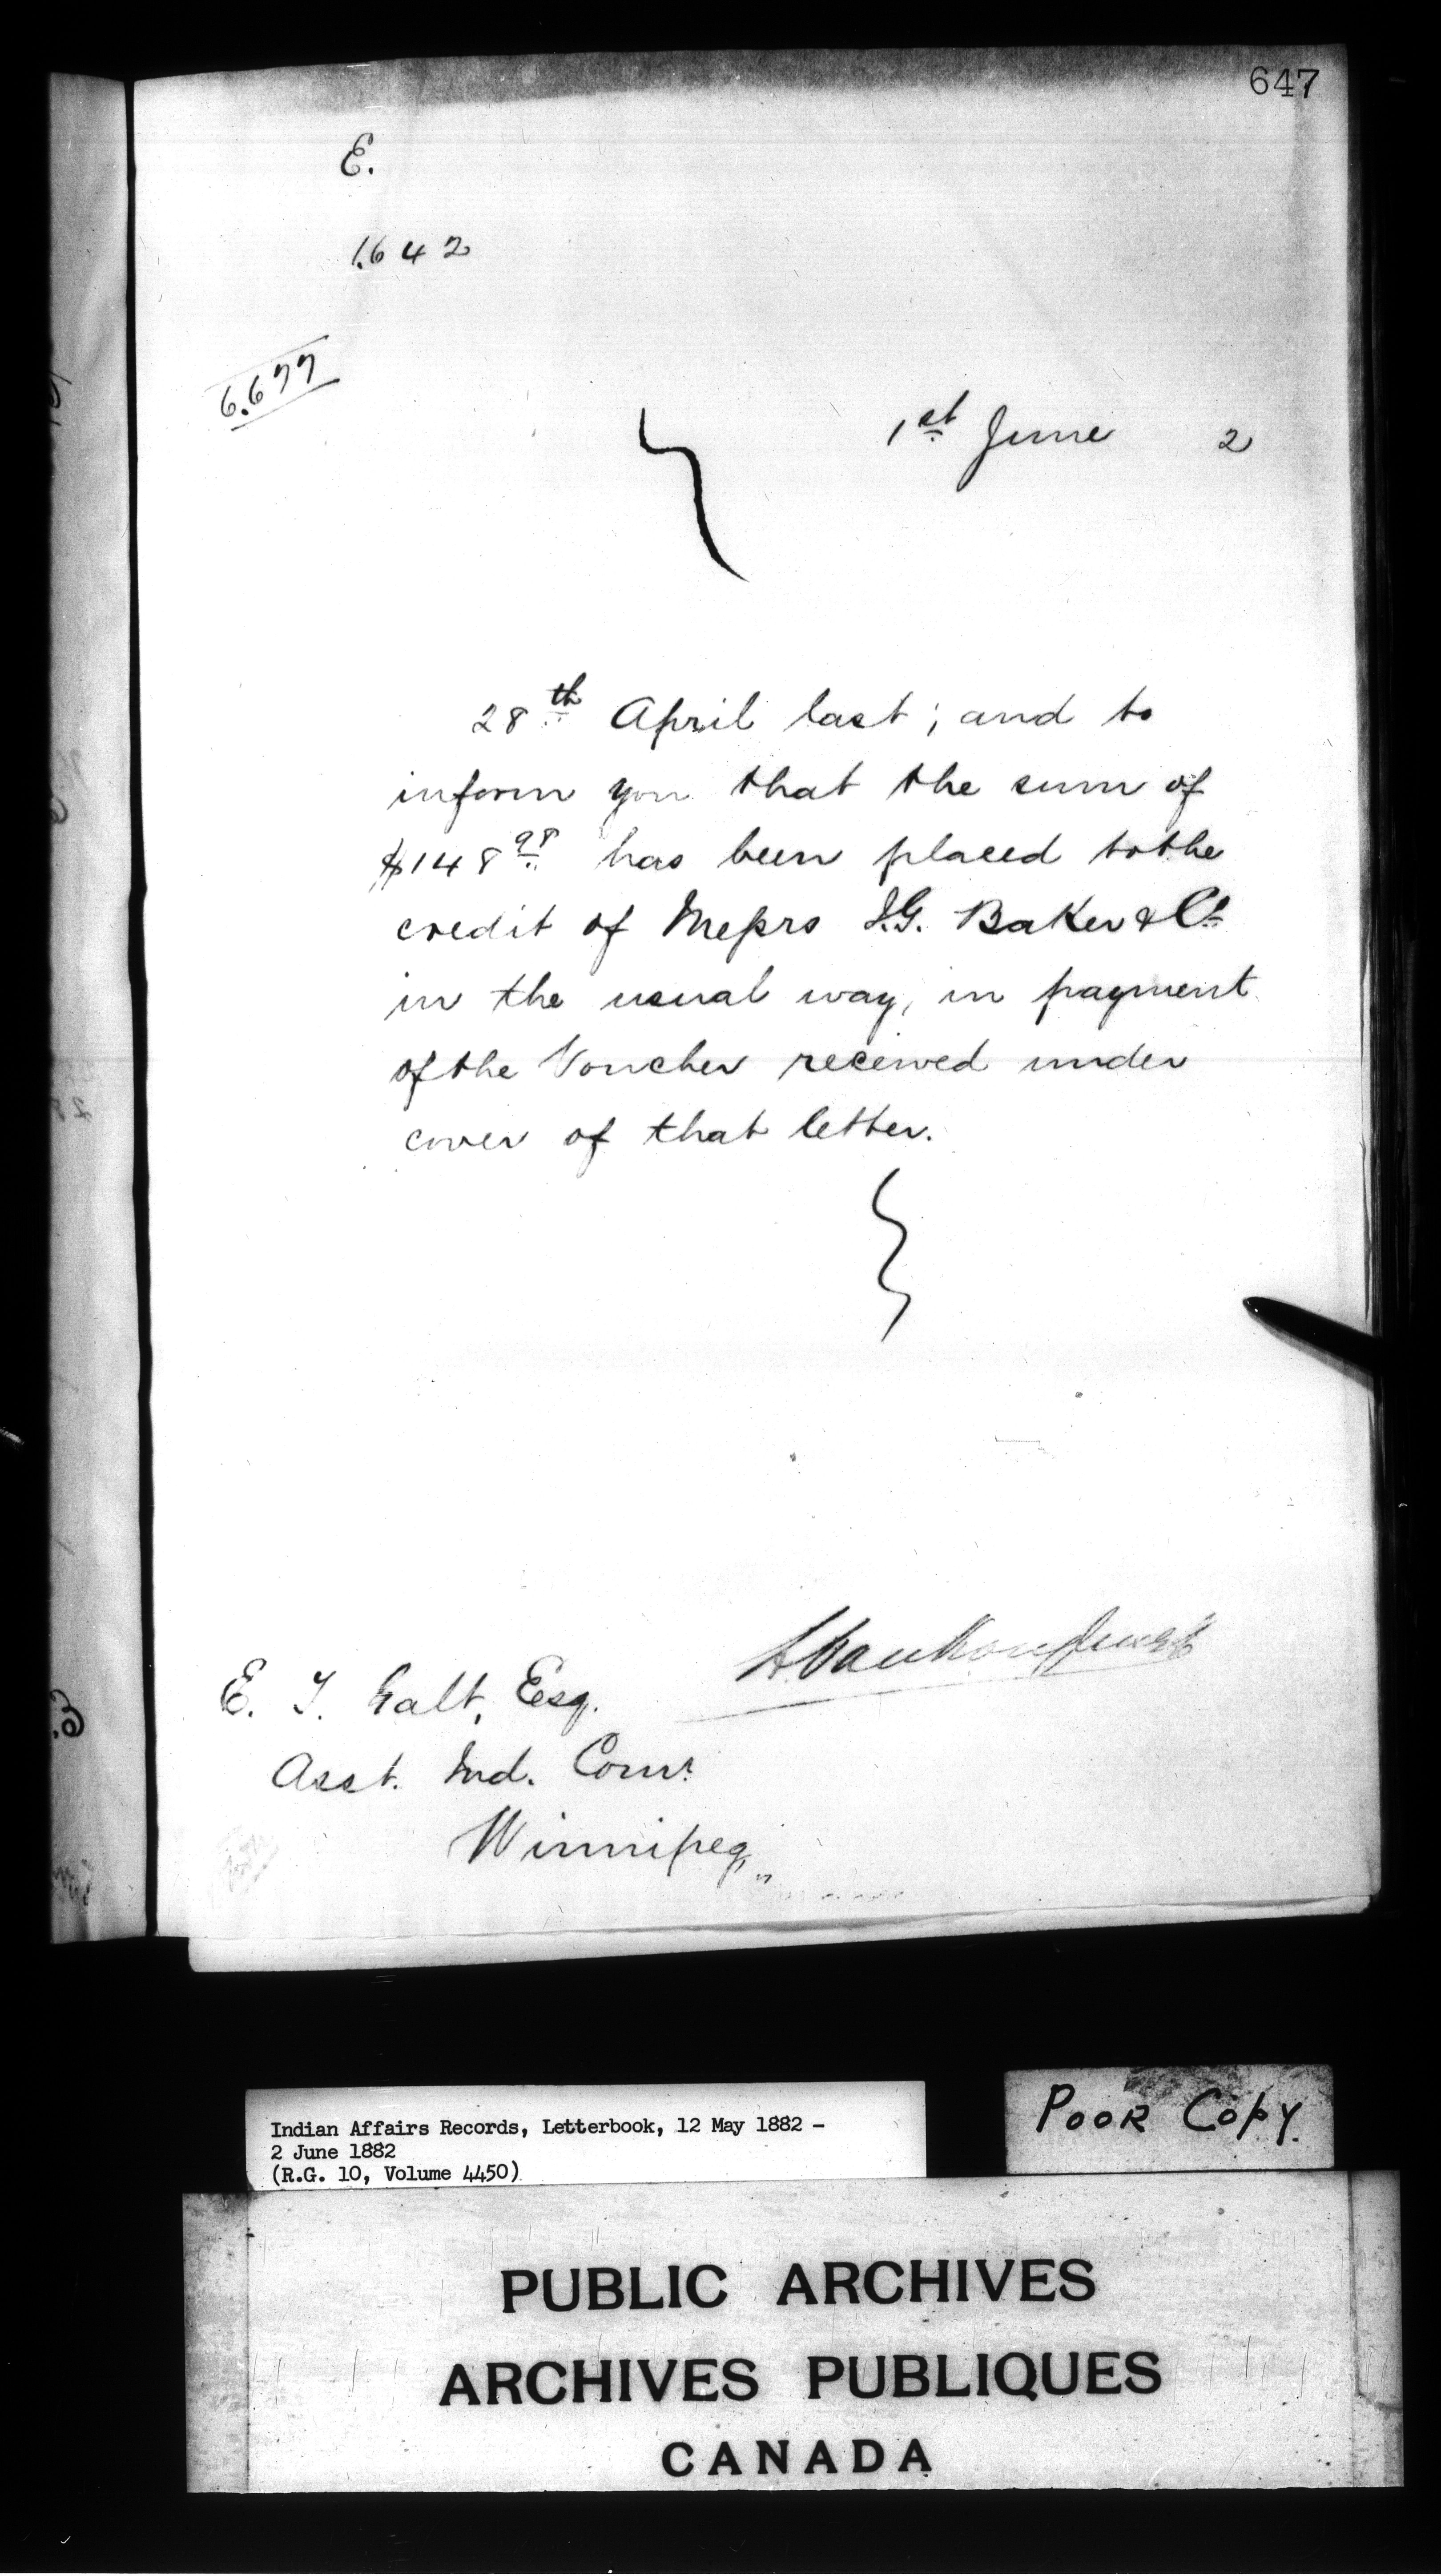 647
E.
1.642
6.677
1st June 2
28th April last; and to
inform you that the sum of
$148 98 has been placed to the
credit of Messrs I.G. Baker & Co
in the usual way, in payment
of the Voucher received under
cover of that letter.
L. Vankoughnet
E. T. Galt, Esq.
Asst. Ind. Comr
Winnipeg
Indian Affairs Records, Letterbook, 12 May 1882 -
2 June 1882
(R.G. 10, Volume 4450)
POOR COPY.
PUBLIC ARCHIVES
ARCHIVES PUBLIQUES
CANADA